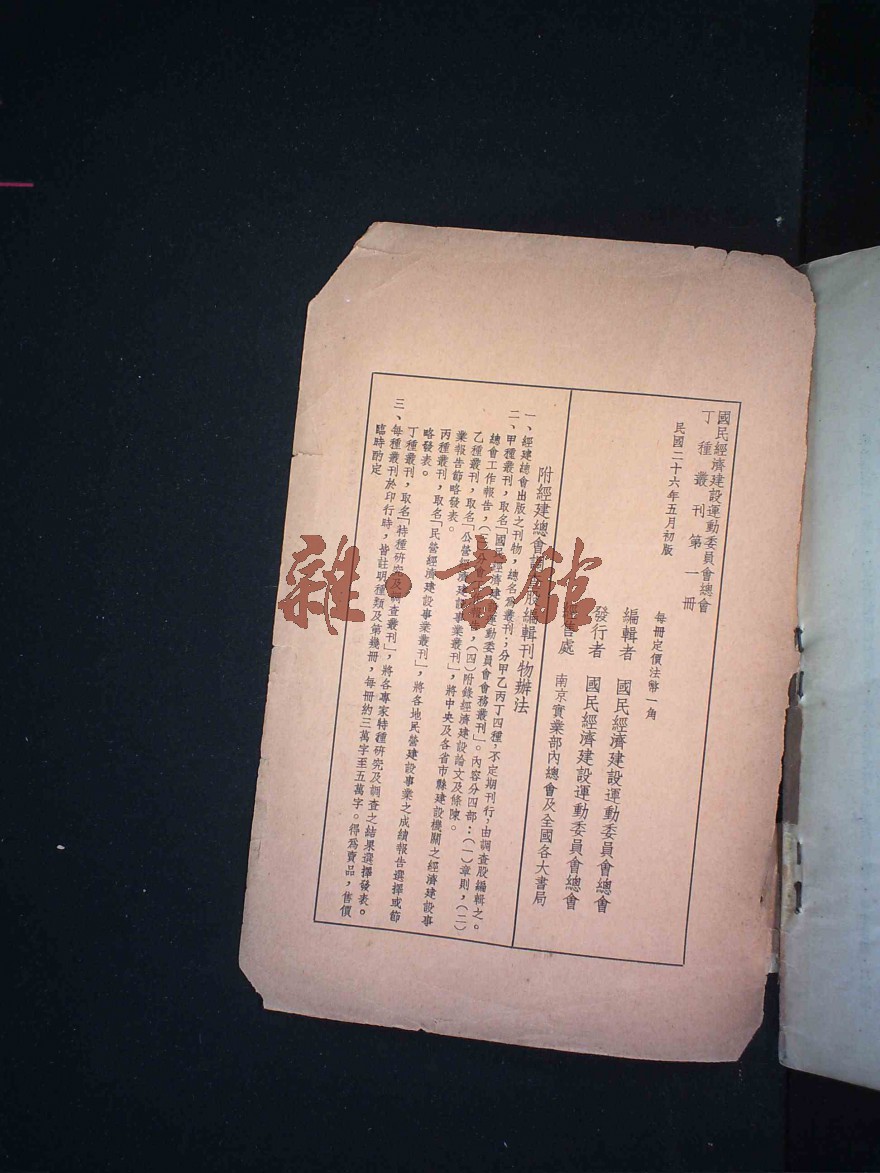 國民經濟建設運動委員會總會
丁種叢刊第一冊
民國二十六年五月初版
每冊定價法幣一角
編輯者 國民經濟建設運動委員會總會
發行者 國民經濟建設運動委員會總會
售處 南京實業部內總會及全國各大書局
附經建總會調查股編輯刊物辦法
一、經建總會出版之刊物，總名為叢刊；分甲乙丙丁四種，不定期刊行，由調查股編輯之。
二、甲種叢刊，取名「國民經濟建設運動委員會會務叢刊」。內容分四部：(一)章則，(二)
總會工作報告，(三)分會，(四)附錄經濟建設論文及條陳。
乙種叢刊，取名「公營經濟建設事業叢刊」，將中央及各省市縣建設機關之經濟建設事
業報告節略發表。
丙種叢刊，取名「民營經濟建設事業叢刊」，將各地民營建設事業之成績報告選擇或節
略發表。
丁種叢刊，取名「特種研究及調查叢刊」，將各專家特種研究及調查之結果選擇發表。
三、每種叢刊於印行時，皆註明種類及第幾冊，每冊約三萬字至五萬字。得為賣品，售價
臨時酌定
雜·書館